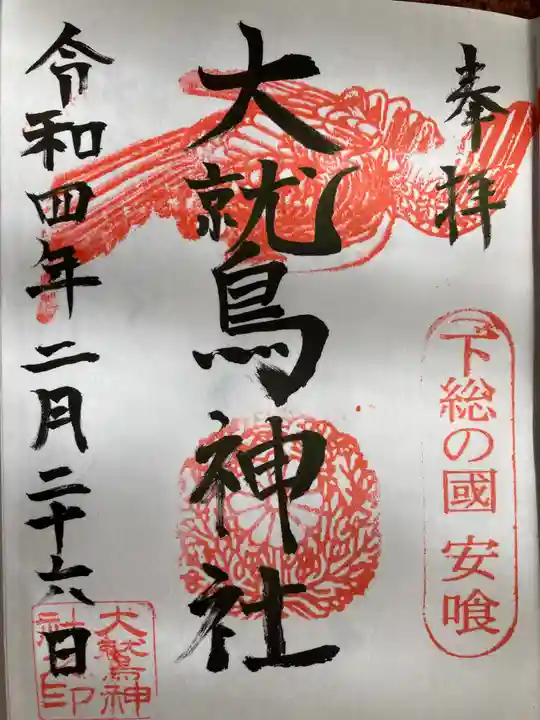 奉拝
下総の國 安喰
大鷲神社
令和四年二月二十六日
大鷲神
社印